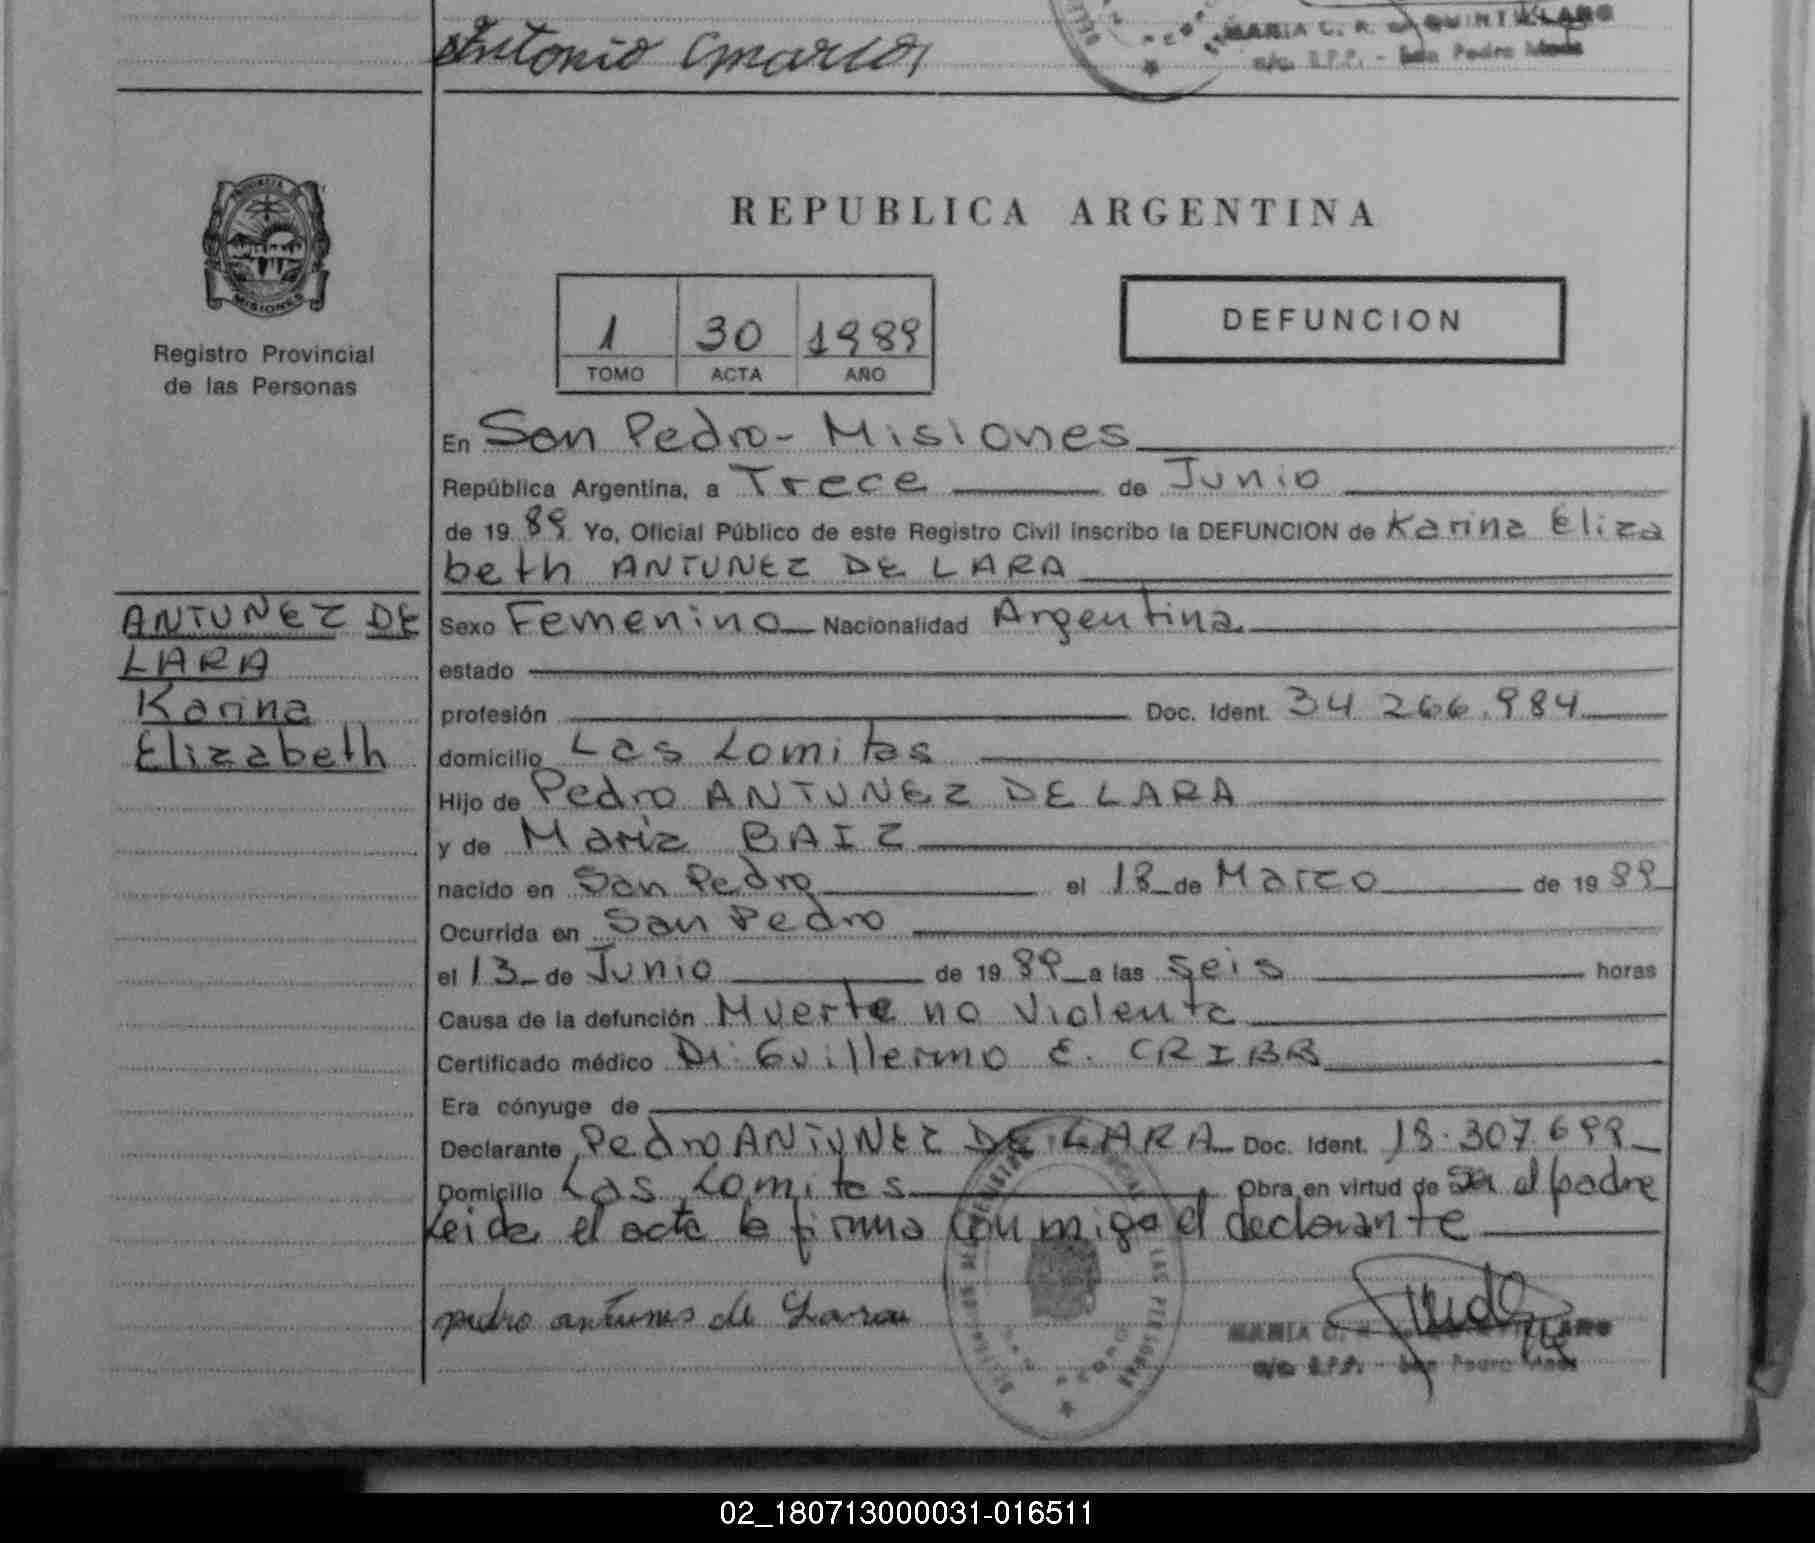 Antonio
MARIA C. R. QUINTILLANO
a/c. R.P.P. - San Pedro Mnes
Registro Provincial
de las Personas
MISIONES
REPUBLICA ARGENTINA
1 30 1989
TOMO ACTA AÑO
DEFUNCION
En San Pedro - Misiones
República Argentina, a Trece de Junio
de 19 89 Yo, Oficial Público de este Registro Civil inscribo la DEFUNCION de Karina Eliza
beth ANTUNEZ DE LARA
ANTUNEZ DE
LARA
Karina
Elizabeth
Sexo Femenino Nacionalidad Argentina
estado
profesión Doc. Ident. 34 266.984
domicilio Las Lomitas
Hijo de Pedro ANTUNEZ DE LARA
y de Maria BAIZ
nacido en San Pedro el 18 de Marzo de 19 89
Ocurrida en San Pedro
el 13 de Junio de 19 89 a las seis horas
Causa de la defunción Muerte no Violenta
Certificado médico Dr. Guillermo E. CRIBB
Era cónyuge de
Declarante Pedro ANTUNEZ DE LARA Doc. Ident. 18.307.699
Domicilio Las Lomitas, Obra en virtud de ser el padre
Leida el acta la firma con migo el declarante
pedro antunes de Lara
MARIA C. R.
a/c. R.P.P. - San Pedro Mnes
02_180713000031-016511